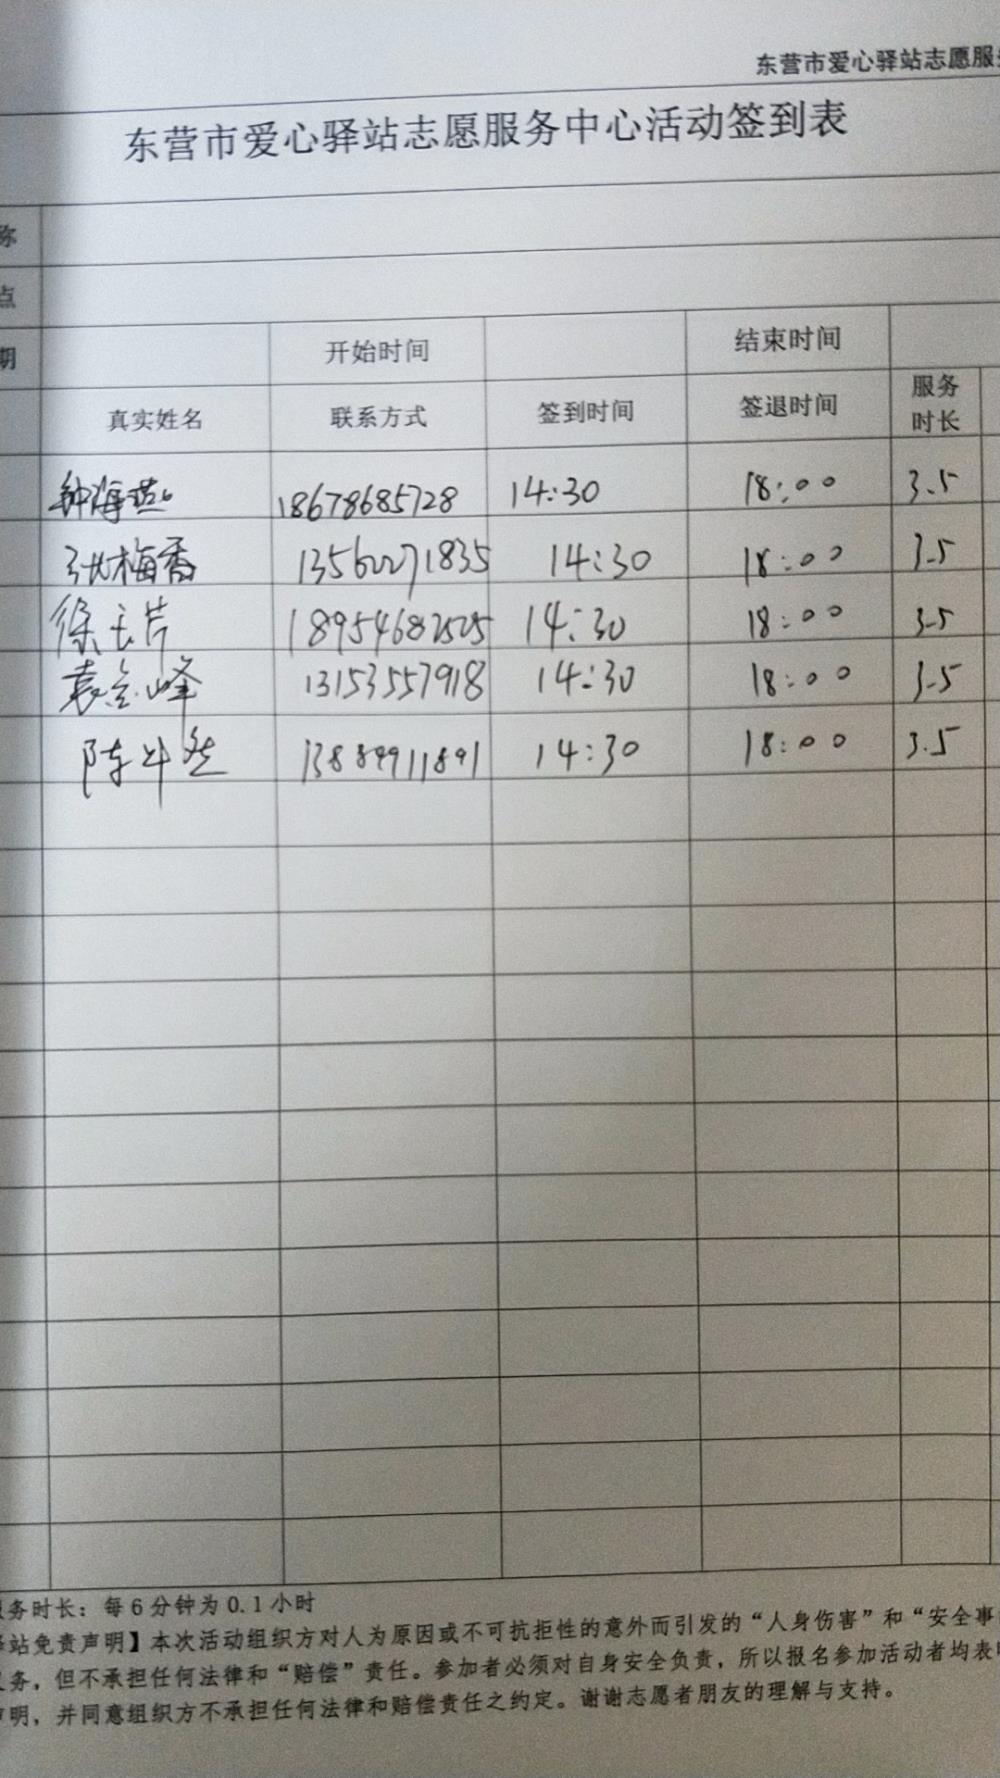 东营市爱心驿站志愿服务
东营市爱心驿站志愿服务中心活动签到表
称
点
期 开始时间 结束时间
真实姓名 联系方式 签到时间 签退时间 服务时长
钟海燕 18678685728 14:30 18:00 3.5
张梅香 13562271835 14:30 18:00 3.5
徐 18954682525 14:30 18:00 3.5
袁 峰 13153557918 14:30 18:00 3.5
陈 14:30 18:00 3.5
服务时长：每6分钟为0.1小时
驿站免责声明】本次活动组织方对人为原因或不可抗拒性的意外而引发的“人身伤害”和“安全事
义务，但不承担任何法律和“赔偿”责任。参加者必须对自身安全负责，所以报名参加活动者均表明
声明，并同意组织方不承担任何法律和赔偿责任之约定。谢谢志愿者朋友的理解与支持。